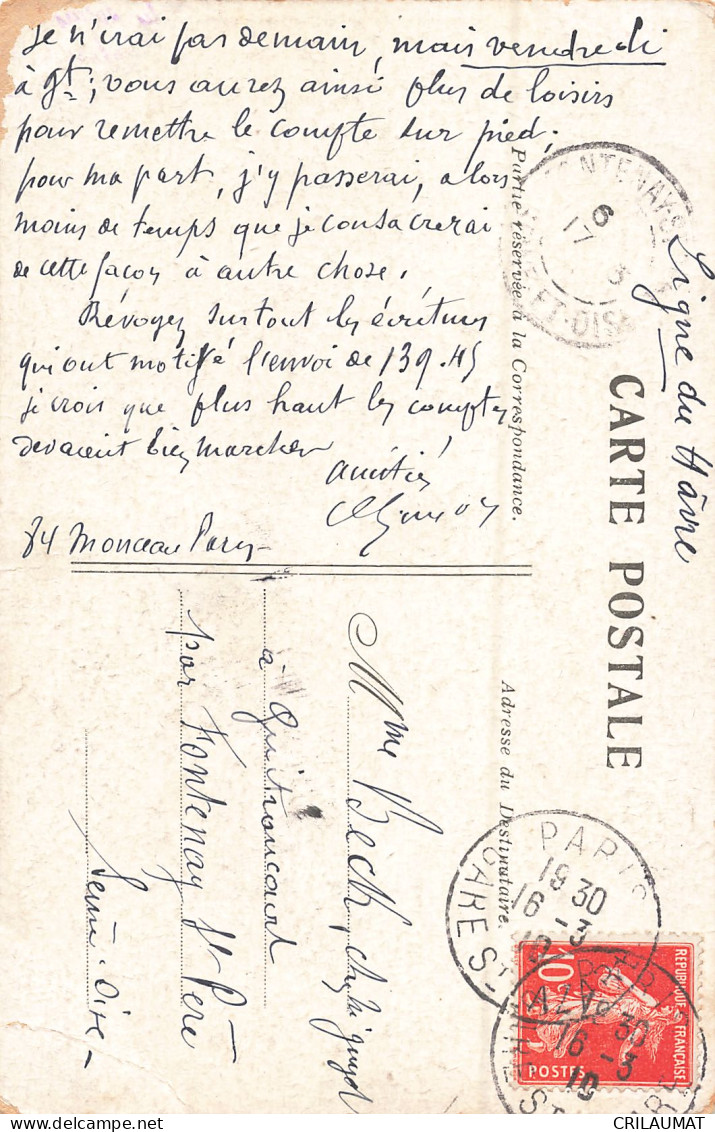 Je n'irai pas demain, mais vendredi
à Gt; vous aurez ainsi plus de loisirs
pour remettre le compte sur pied;
pour ma part, j'y passerai, alors
moins de temps que je consacrerai
de cette façon à autre chose.
Révoyez surtout les écritures
qui ont motivé l'envoi de 139.45
je crois que plus haut les comptes
devaient bien marcher
amitiés
84 Monceau Paris
Partie réservée à la Correspondance.
Ligne du Hâvre
CARTE POSTALE
Adresse du Destinataire.
Mme Bech,
à Guitrancourt
par Fontenay St Père
Seine-Oise
6
17 3
ET-OISE
PARIS
19 30
16 - 3
10
ST LAZARE
REPUBLIQUE FRANÇAISE
10
POSTES
30
16 - 3
10
CRILAUMAT